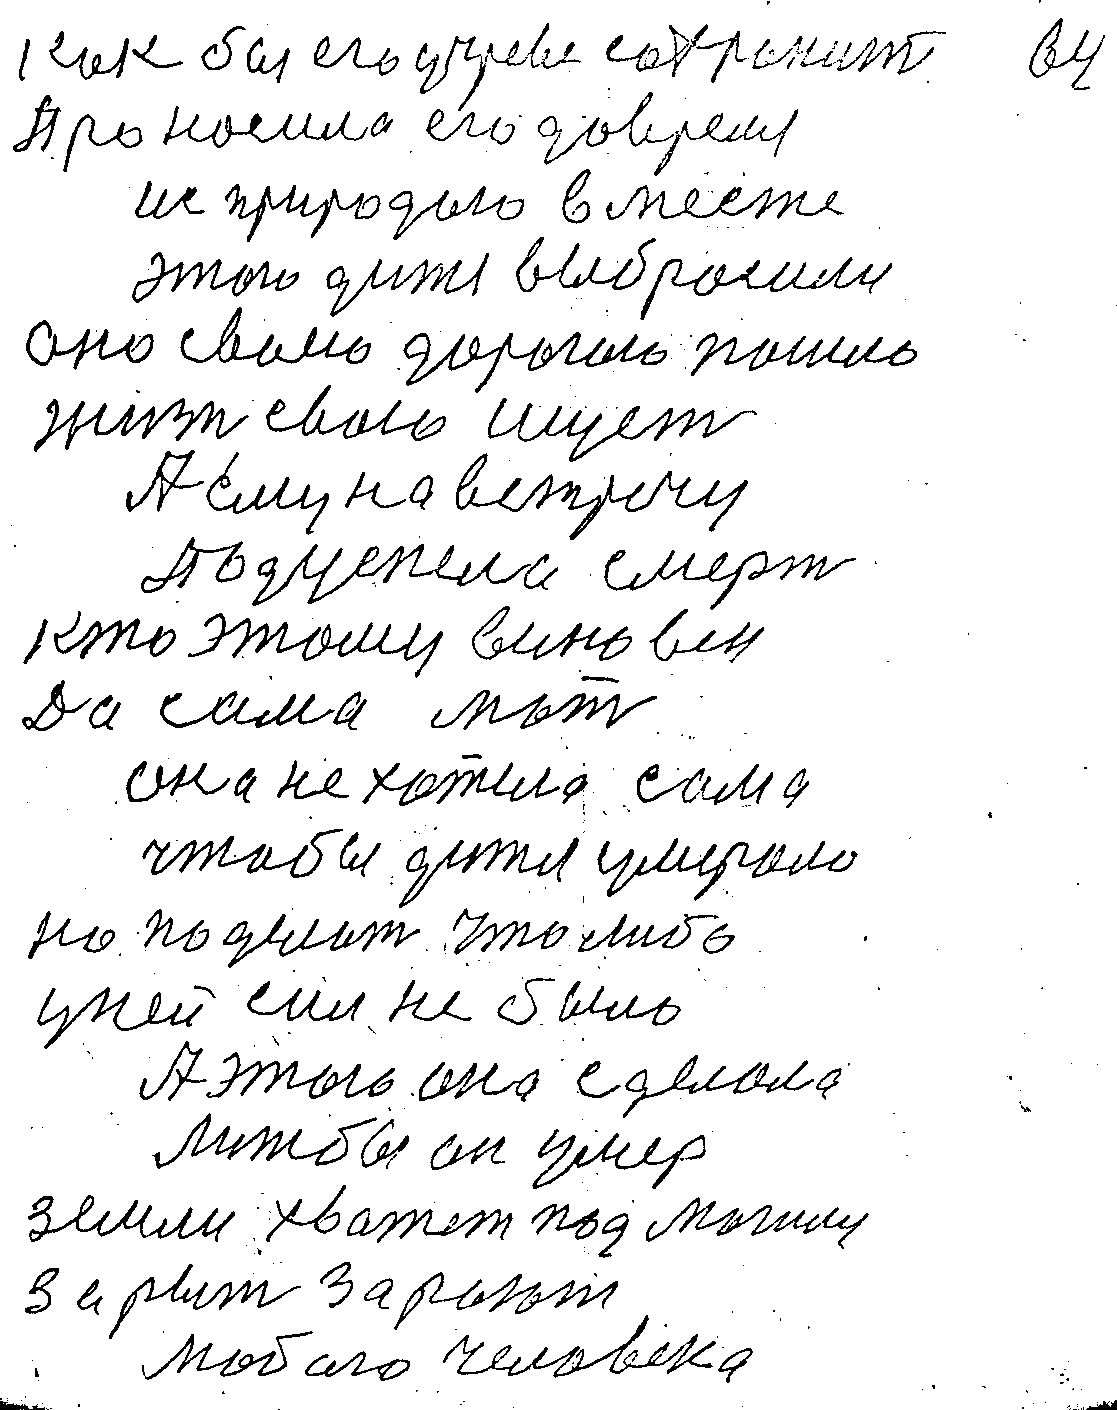 Как бы его утреве сохранит 64
Проносила его довремя
ис природыю вместе
этого дитя выбросили
оно свою дорогою пошло
жизн свою ищет
А ему навстречу
Подуспела смерт
Кто этому виновен
Да сама мат
она не хотела сама
чтобы дитя умирало
но поделат что либо
уней сил не было
А этого она сделала
Лижбы он умер
Земли хватет под могилу
Зарыт Зароют
любого человека